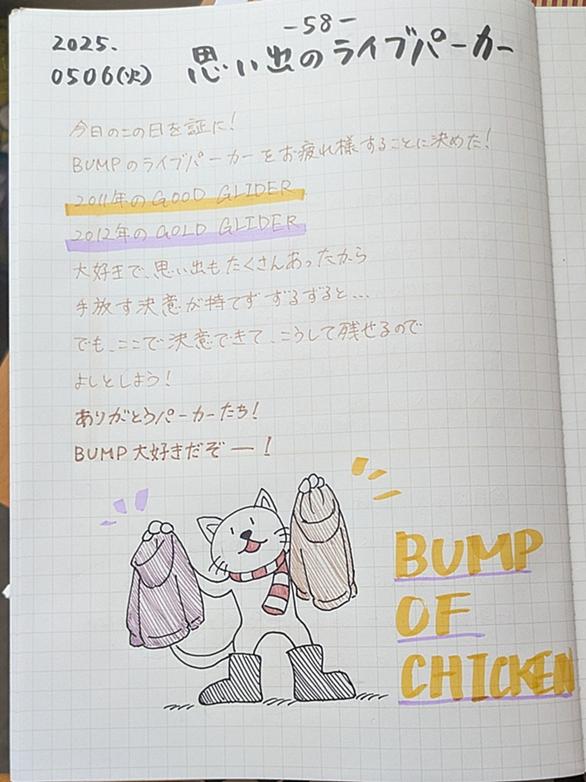 -58-
2025.
0506(火)
思い出のライブパーカー
今日のこの日を証に!
BUMPのライブパーカーをお疲れ様することに決めた!
2011年のGOOD GLIDER
2012年のGOLD GLIDER
大好きで、思い出もたくさんあったから
手放す決意が持てずずるずると...
でも、ここで決意できて、こうして残せるので
よしとしよう!
ありがとうパーカーたち!
BUMP大好きだぞー!
BUMP
OF
CHICKEN